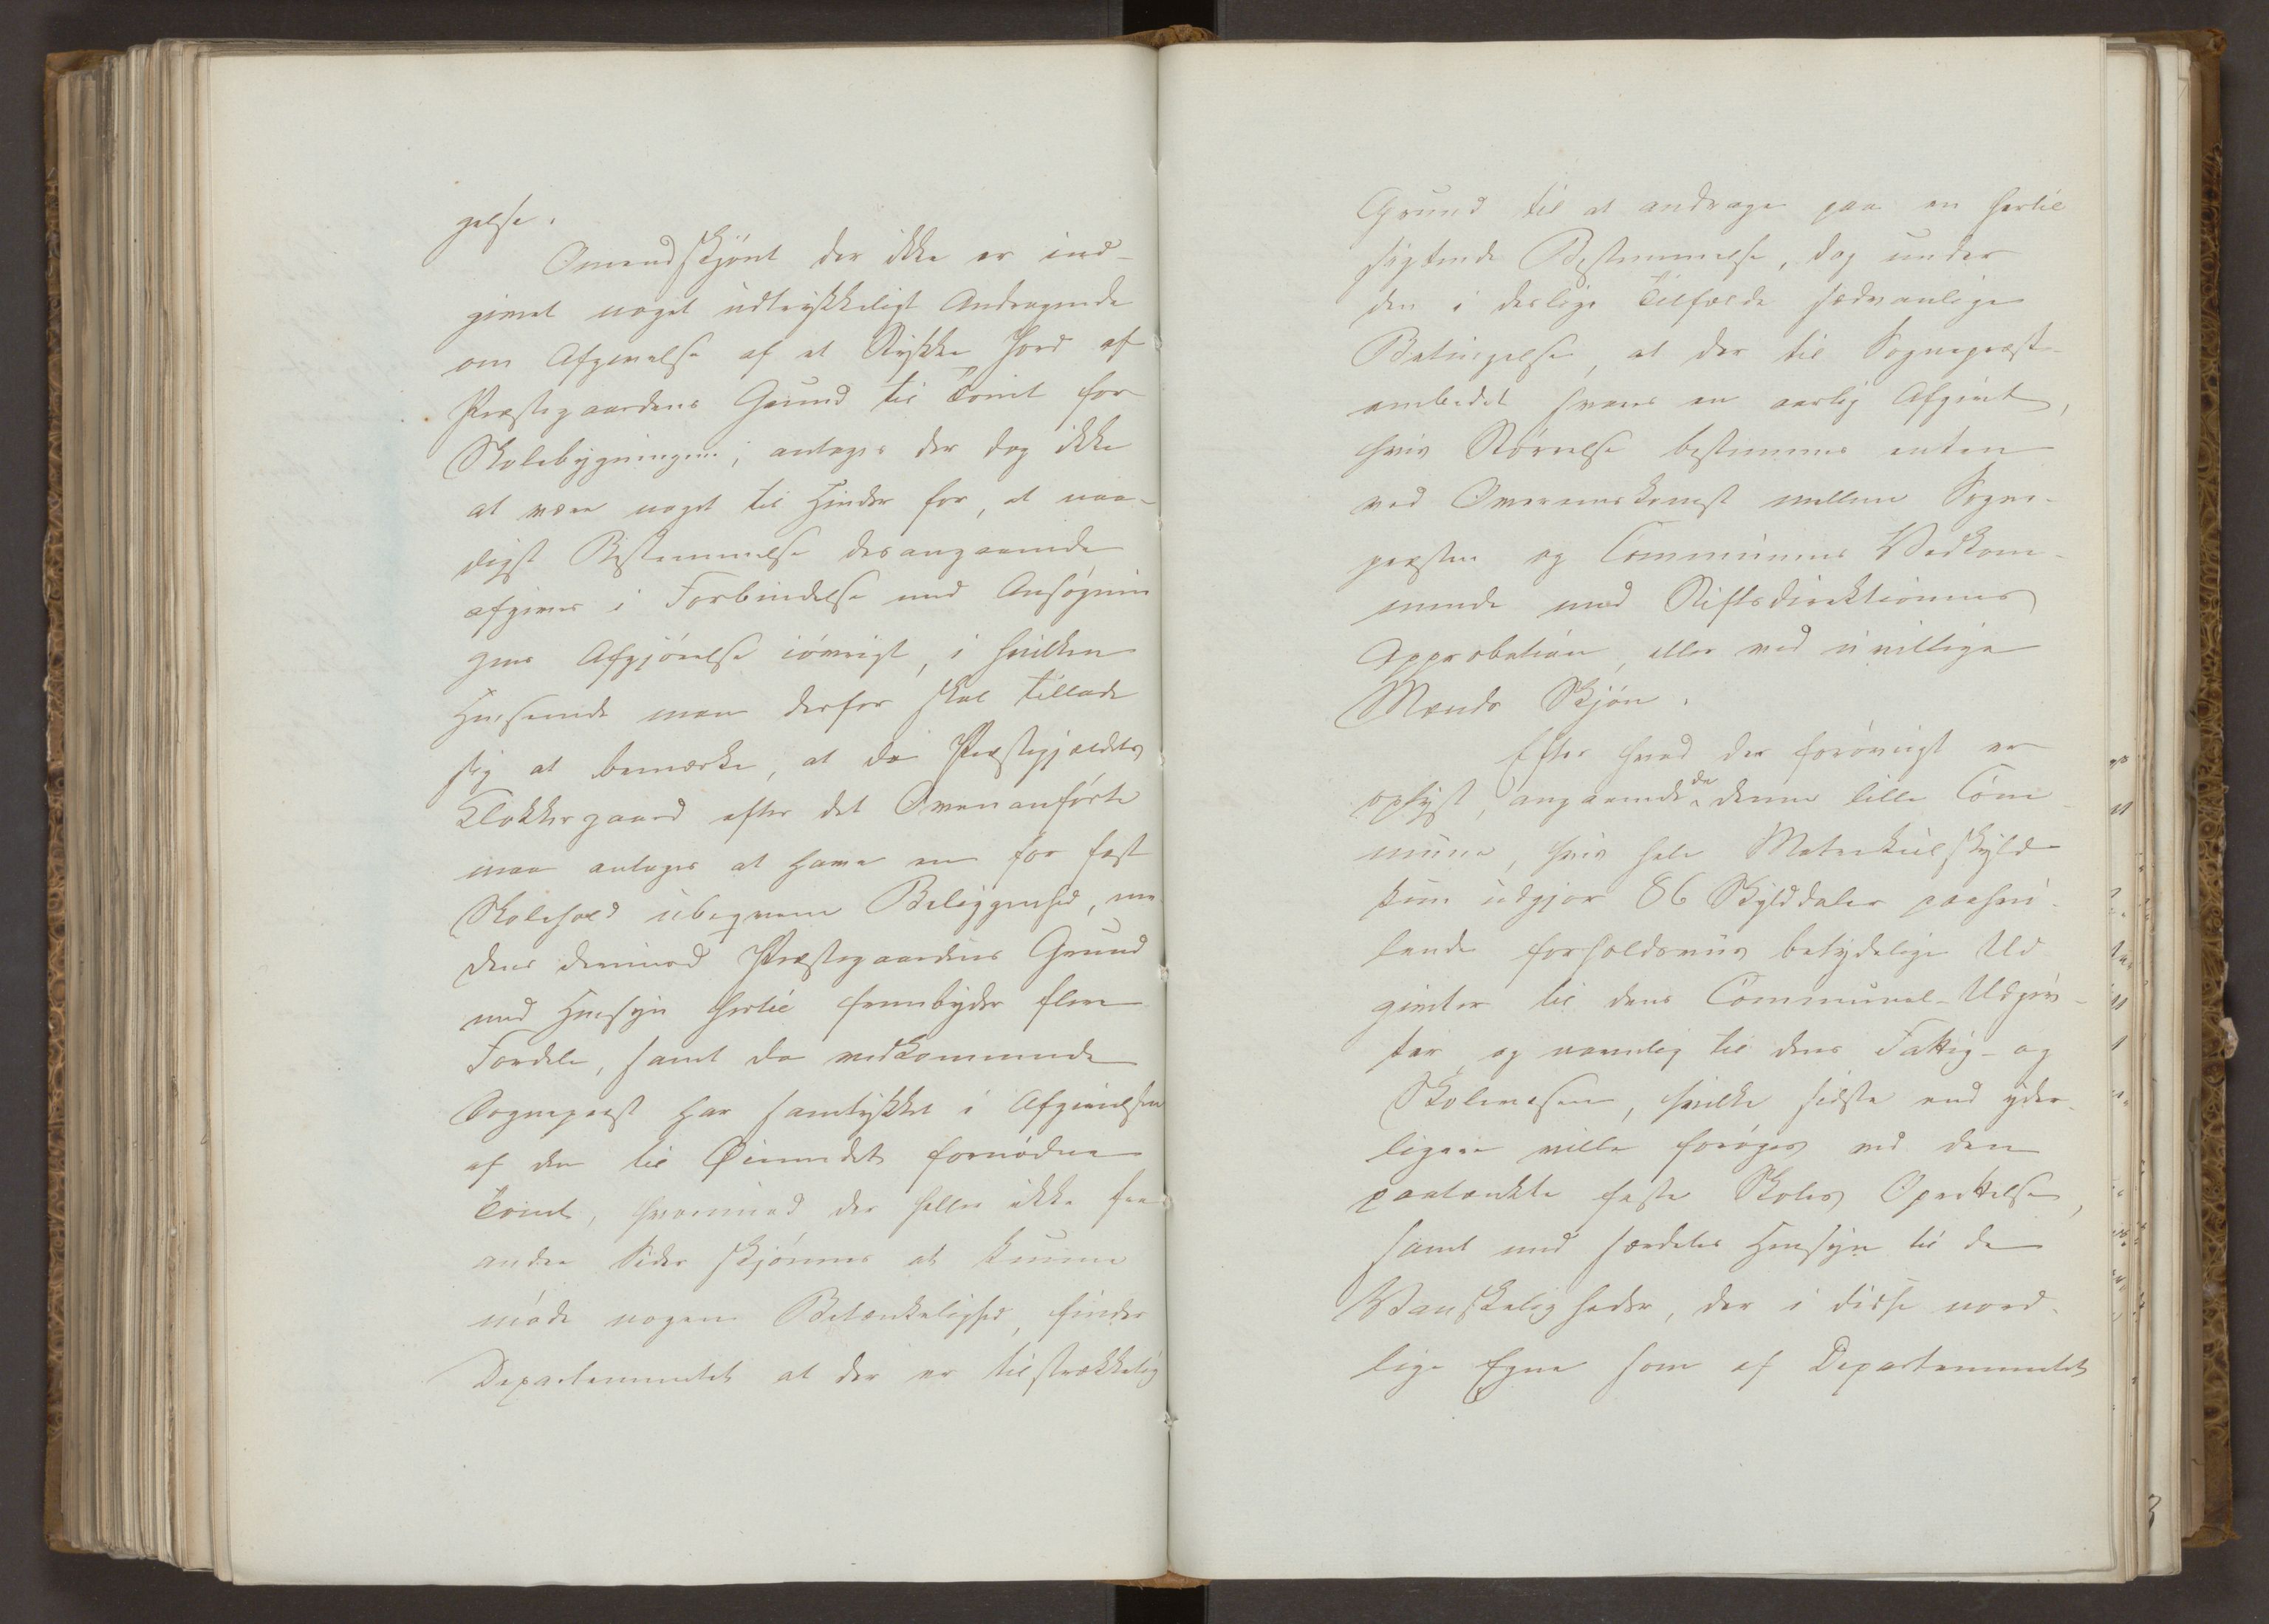 gelse.
Omendskjönt der ikke er ind-
givet noget udtrykkeligt Andragende
om Afgivelse af et Stykke Jord af
Præstegaardens Grund til Tomt for
Skolebygningen, antages der dog ikke
at være noget til Hinder for, at naa-
digst Bestemmelse desangaaende
afgives i Forbindelse med Ansøgnin
gens Afgjörelse iövrigt, i hvilken
Henseende man derfor skal tillade
sig at bemærke, at da Præstegjeldets
Klokkergaard efter det Ovenanförte
maa antages at have en for fast
Skolehold ubeqvem Beliggenhed, me-
dens derimod Præstegaardens Grund
med Hensyn hertil frembyder flere
Fordele, samt da vedkommende
Sognepræst har samtykket i Afgivelsen
af den til Øiemedet fornödne
Tomt, hvorimod der heller ikke fra
andre Sider skjönnes at kunne
möde nogen Betænkelighed, finder
Departementet at der er tilstrækkelig
Grund til at andrage paa en hertil
sigtende Bestemmelse, dog under
den i deslige Tilfælde sædvanlige
Betingelse, at der til Sognepræst-
embedet svares en aarlig Afgivt,
hvis Störrelse bestemmes enten
ved Overenskomst mellem Sogne-
præsten og Communens Vedkom-
mende med Stiftsdirektionens
Approbation, eller ved uvillige
Mænds Skjön.
Efter hvad der forövrigt er
oplyst, angaaende de denne lille Com
mune, hvis hele Matrikulskyld
kun udgjör 86 Skylddaler paahvi-
lende forholdsviis betydelige Ud
givter til dens Communal-Udgiv-
ter, og navnlig til dens Fattig- og
Skolevæsen, hvilke sidste end yder-
ligere ville foröges ved den
paatænkte faste Skoles Oprettelse,
samt med særdeles Hensyn til de
Vanskeligheder, der i disse nord-
lige Egne som af Departementet